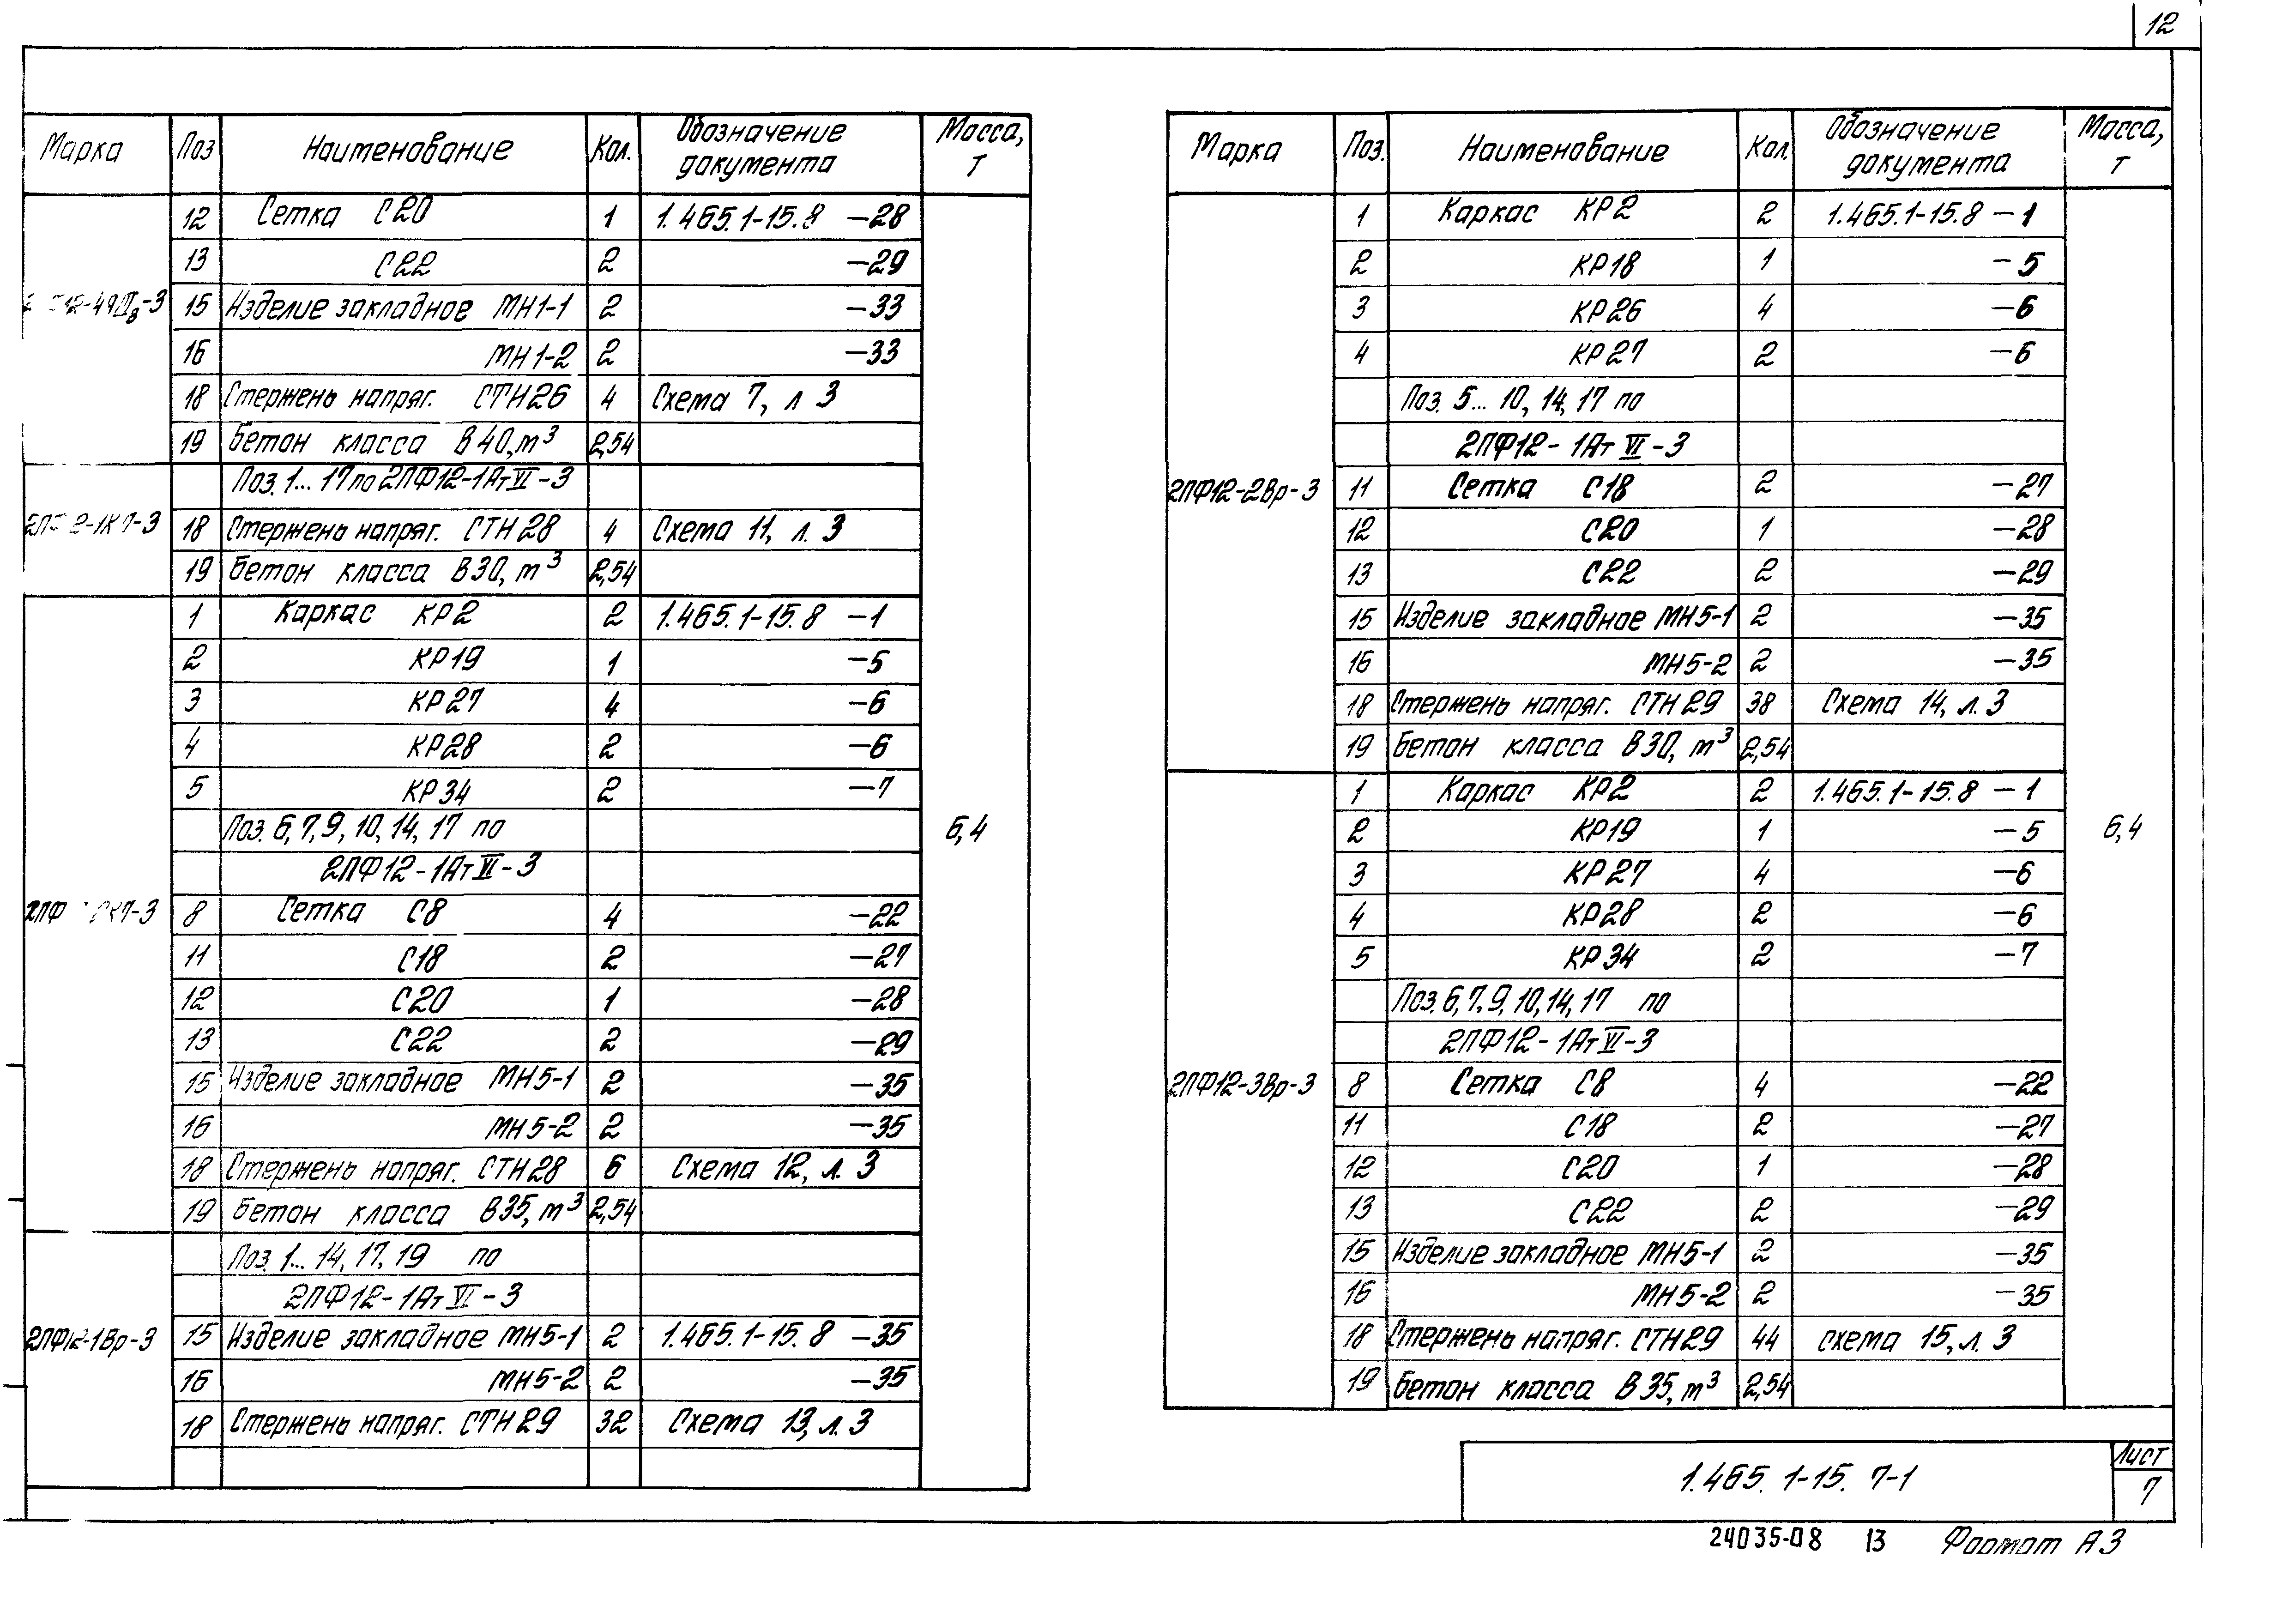 12
Марка Поз Наименование Кол. Обозначение документа Масса, т
12 Сетка С20 1 1.465.1-15.8 -28
13 С22 2 -29
15 Изделие закладное МН1-1 2 -33
16 МН1-2 2 -33
18 Стержень напряг. СТН26 4 Схема 7, л 3
19 Бетон класса В40, м³ 2,54
Поз. 1... 17 по 2ПФ12-1АтVI-3
18 Стержень напряг. СТН28 4 Схема 11, л. 3
19 Бетон класса В30, м³ 2,54
1 Каркас КР2 2 1.465.1-15.8 -1
2 КР19 1 -5
3 КР27 4 -6
4 КР28 2 -6
5 КР34 2 -7
Поз. 6, 7, 9, 10, 14, 17 по
2ПФ12-1АтVI-3
6,4
8 Сетка С8 4 -22
11 С18 2 -27
12 С20 1 -28
13 С22 2 -29
15 Изделие закладное МН5-1 2 -35
16 МН5-2 2 -35
18 Стержень напряг. СТН28 6 Схема 12, л. 3
19 Бетон класса В35, м³ 2,54
Поз. 1... 14, 17, 19 по
2ПФ12-1АтVI-3
2ПФ12-1Вр-3 15 Изделие закладное МН5-1 2 1.465.1-15.8 -35
16 МН5-2 2 -35
18 Стержень напряг. СТН29 32 Схема 13, л. 3
Марка Поз. Наименование Кол. Обозначение документа Масса, т
1 Каркас КР2 2 1.465.1-15.8 -1
2 КР18 1 -5
3 КР26 4 -6
4 КР27 2 -6
Поз. 5... 10, 14, 17 по
2ПФ12-1АтVI-3
2ПФ12-2Вр-3 11 Сетка С18 2 -27
12 С20 1 -28
13 С22 2 -29
15 Изделие закладное МН5-1 2 -35
16 МН5-2 2 -35
18 Стержень напряг. СТН29 38 Схема 14, л. 3
19 Бетон класса В30, м³ 2,54
1 Каркас КР2 2 1.465.1-15.8 -1
2 КР19 1 -5
6,4
3 КР27 4 -6
4 КР28 2 -6
5 КР34 2 -7
Поз. 6, 7, 9, 10, 14, 17 по
2ПФ12-1АтVI-3
2ПФ12-3Вр-3 8 Сетка С8 4 -22
11 С18 2 -27
12 С20 1 -28
13 С22 2 -29
15 Изделие закладное МН5-1 2 -35
16 МН5-2 2 -35
18 Стержень напряг. СТН29 44 схема 15, л. 3
19 Бетон класса В35, м³ 2,54
1.465.1-15.7-1
Лист
7
24035-08 13 Формат А3